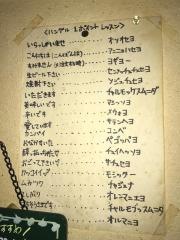 〈ハングル 1ポイント レッスン〉
いらっしゃいませ → オソオセヨ
こんにちは(こんばんは) → アニョハセヨ
すみません(注文する時) → ヨギヨー
生ビール下さい → センメッチュチュセヨ
焼酎下さい → ソジュチュセヨ
いただきます → チャルモッケスムニダ
美味しいです → マシッソヨ
辛いです → メウォヨ
愛しています → サランヘヨ
カンパイ → コンベ
おなかすいた → ペゴッパヨ
チュィヘッソヨ
おごって下さい → サジュセヨ
カッコイイ → モシッター
ムカツク → チャジュンナ
オレマニエヨ
チャルモゴッスムニダ
オルマエヨ